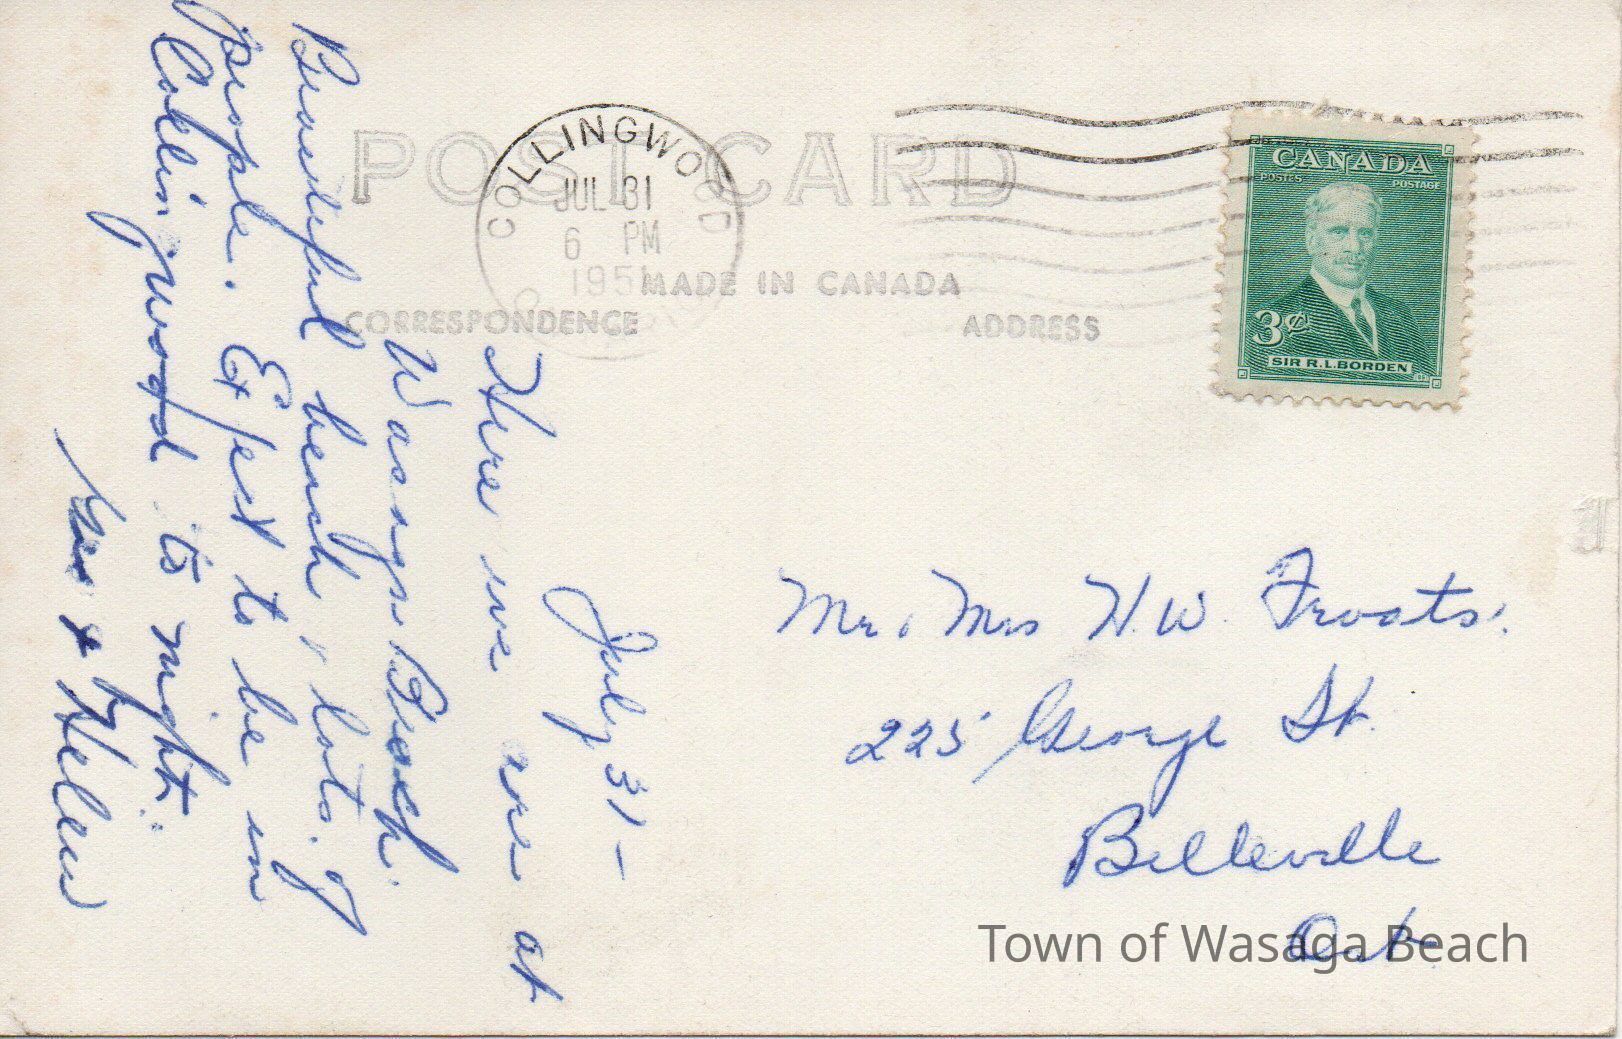 POST CARD
COLLINGWOOD
JUL 31
6 PM
1951
MADE IN CANADA
CORRESPONDENCE
ADDRESS
CANADA
POSTES POSTAGE
3¢
SIR R.L. BORDEN
July 31 -
Here we are at
Wasaga Beach.
Beautiful beach, lots of
people. Expect to be in
Collingwood to night.
& Helen
Mr. Mrs H.W. Froats.
225 George St.
Belleville
Ont.
Town of Wasaga Beach